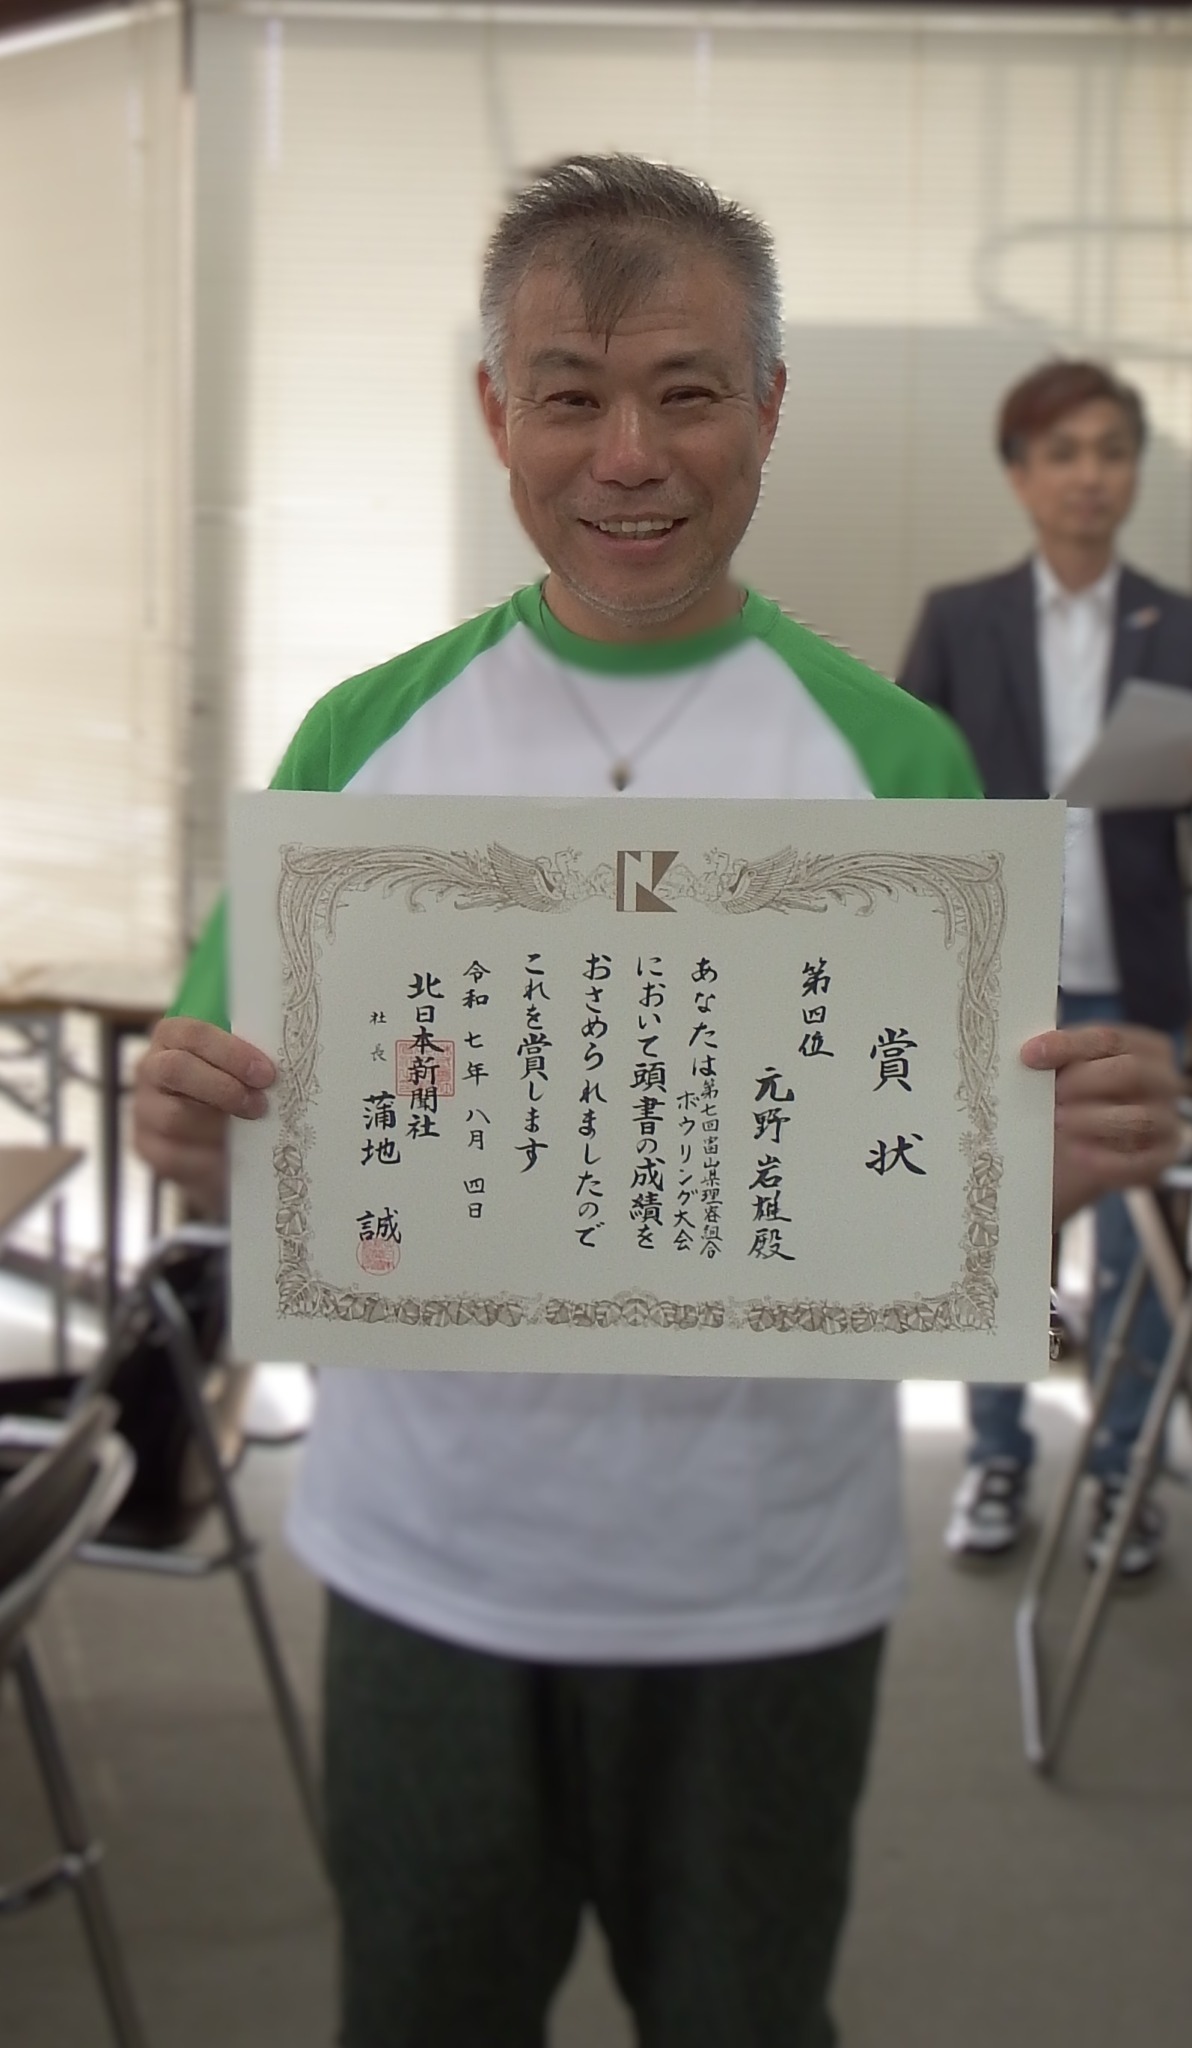 賞状
第四位
元野岩雄殿
あなたは第七回富山県理容組合
ボウリング大会
において頭書の成績を
おさめられましたので
これを賞します
令和七年八月四日
北日本新聞社
社長 蒲地 誠